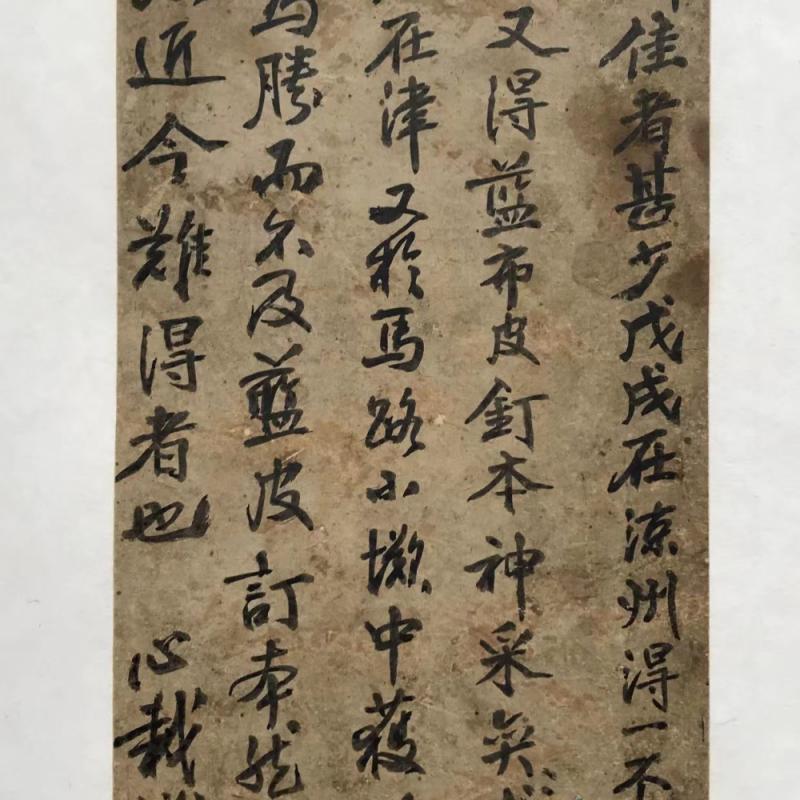 佳者甚少戊戌在涼州得一不
又得藍布皮釘本神采奕
在津又於馬路小攤中獲
馬勝而不及藍皮訂本然
近今難得者也 心栽